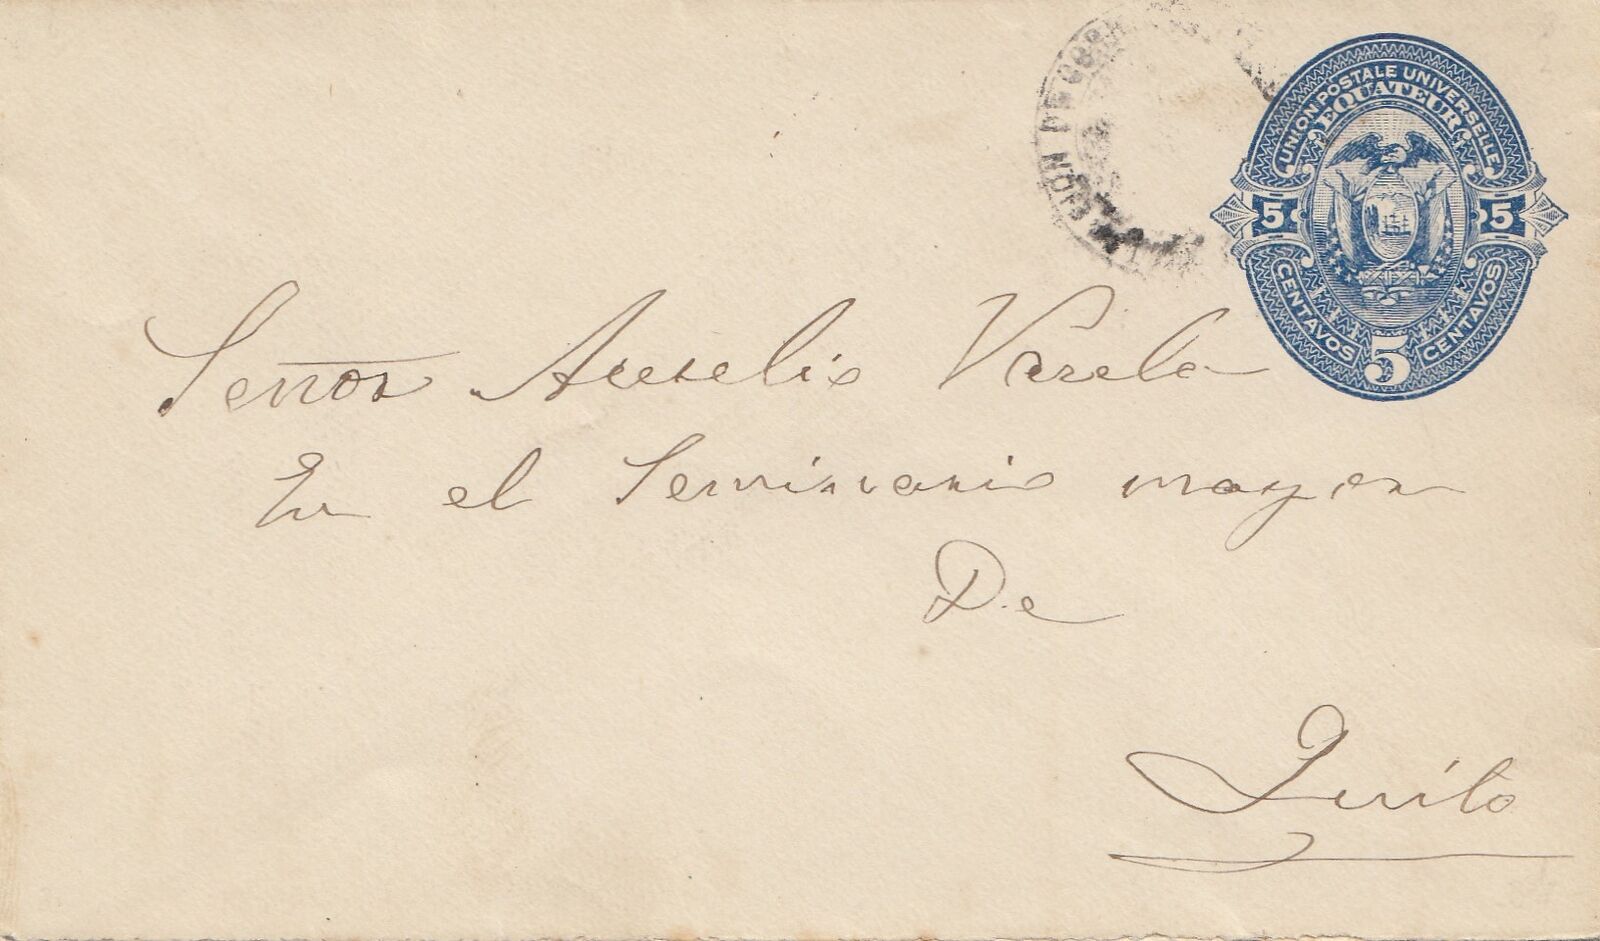 UNION POSTALE UNIVERSELLE
EQUATEUR
5 5
CENTAVOS 5 CENTAVOS
Señor Aurelio Varela
En el Seminario mayor
De
Quito